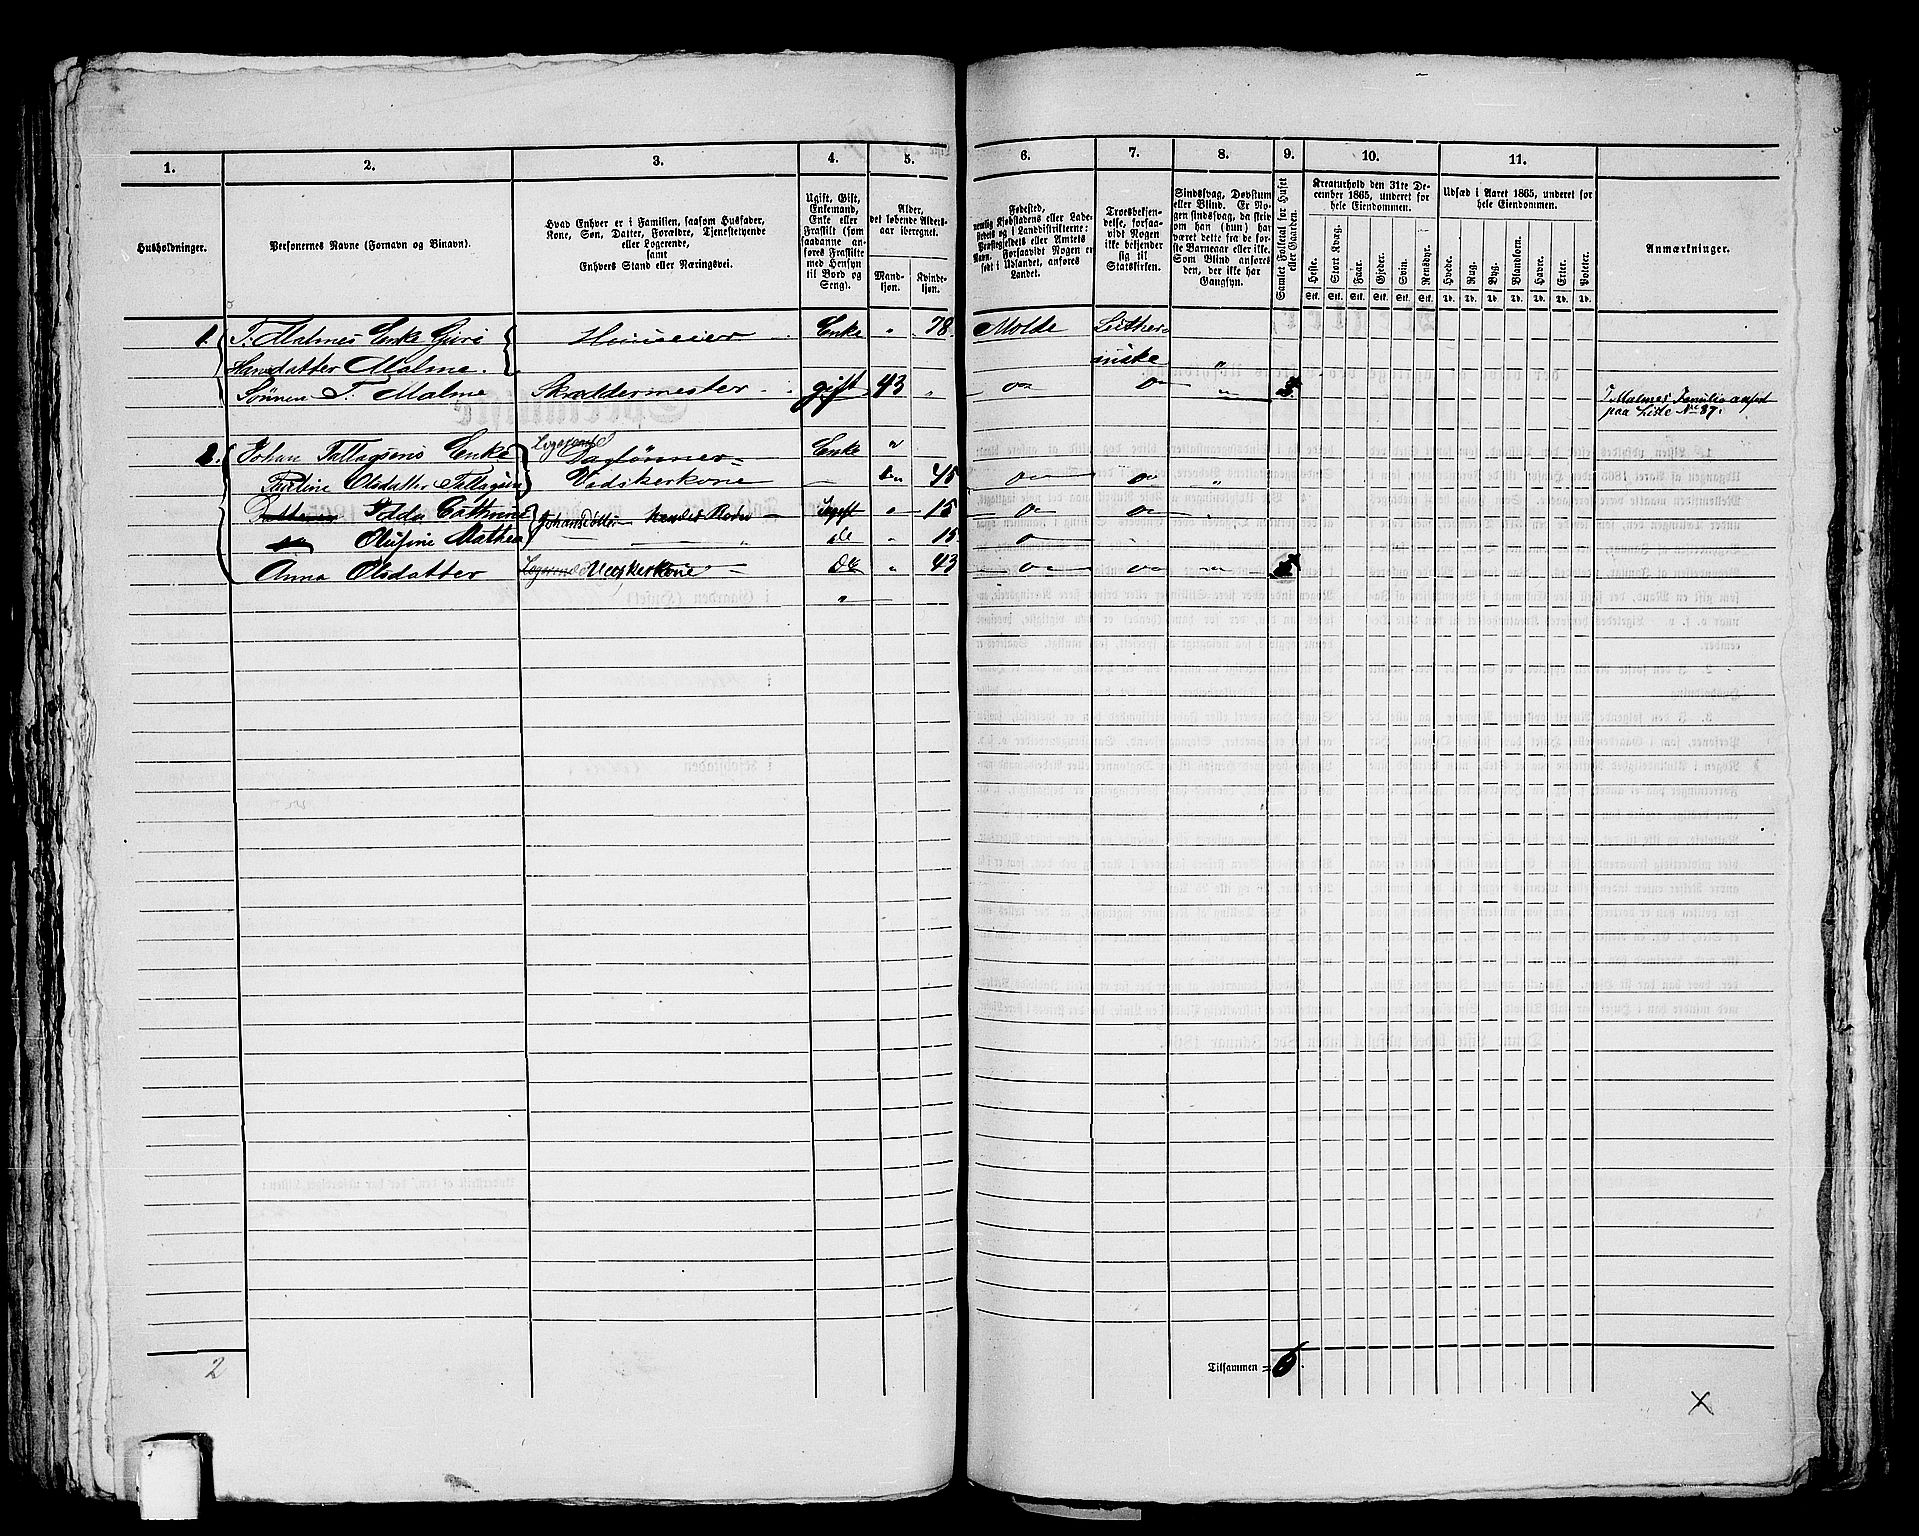 1. 2. 3. 4. 5. 6. 7. 8. 9. 10. 11.
Husholdninger.
Personernes Navne (Fornavn og Binavn).
Hvad Enhver er i Familien, saasom Husfader,
Kone, Søn, Datter, Forældre, Tjenestetyende
eller Logerende,
samt
Enhvers Stand eller Næringsvei.
Ugift, Gift,
Enkemand,
Enke eller
Fraskilt (som
saadanne an-
føres Fraskilte
med Hensyn
til Bord og
Seng).
Alder,
det løbende Alders-
aar iberegnet.
Mand-
kjøn.
Kvinde-
kjøn.
Fødested,
nemlig Kjøbstadens eller Lade-
stedets og i Landdistrikterne:
Præstegjeldets eller Amtets
Navn. Forsaavidt Nogen er
født i Udlandet, anføres
Landet.
Troesbekjen-
delse, forsaa-
vidt Nogen
ikke bekjender
sig til
Statskirken.
Sindssvag, Døvstum
eller Blind. Er No-
gen sindssvag, da skriv
om han (hun) har
været dette fra de før-
ste Barneaar eller ikke.
Som Blind anføres
den, der ikke har
Gangsyn.
Samlet Folketal for Huset
eller Gaarden.
Kreaturhold den 31te De-
cember 1865, underet for
hele Eiendommen.
Heste. Stort Kvæg. Faar. Gjeder. Svin. Rensdyr.
Stk. Stk. Stk. Stk. Stk. Stk.
Udsæd i Aaret 1865, underet for
hele Eiendommen.
Hvede. Rug. Byg. Blandkorn. Havre. Erter. Poteter.
Td. Td. Td. Td. Td. Td. Td.
Anmærkninger.
1. T. Malmes Enke Guri Huuseier Enke " 78 Molde Luther-
Hansdatter Malme. anske "
Sønnen T. Malme Skræddermester gift 43 "
T Malmes Familie anført
paa Liste No 87.
2. Johan Tallagsens Enke Logerende Daglønner Enke "
Pauline Olsdatter Tallagsen Vadskerkone 45
Ugift " 15
Olufine Mathea do " 15
Anna Olsdatter Logerende Vaskerkone Do " 43
2
Tilsammen = 6.
X